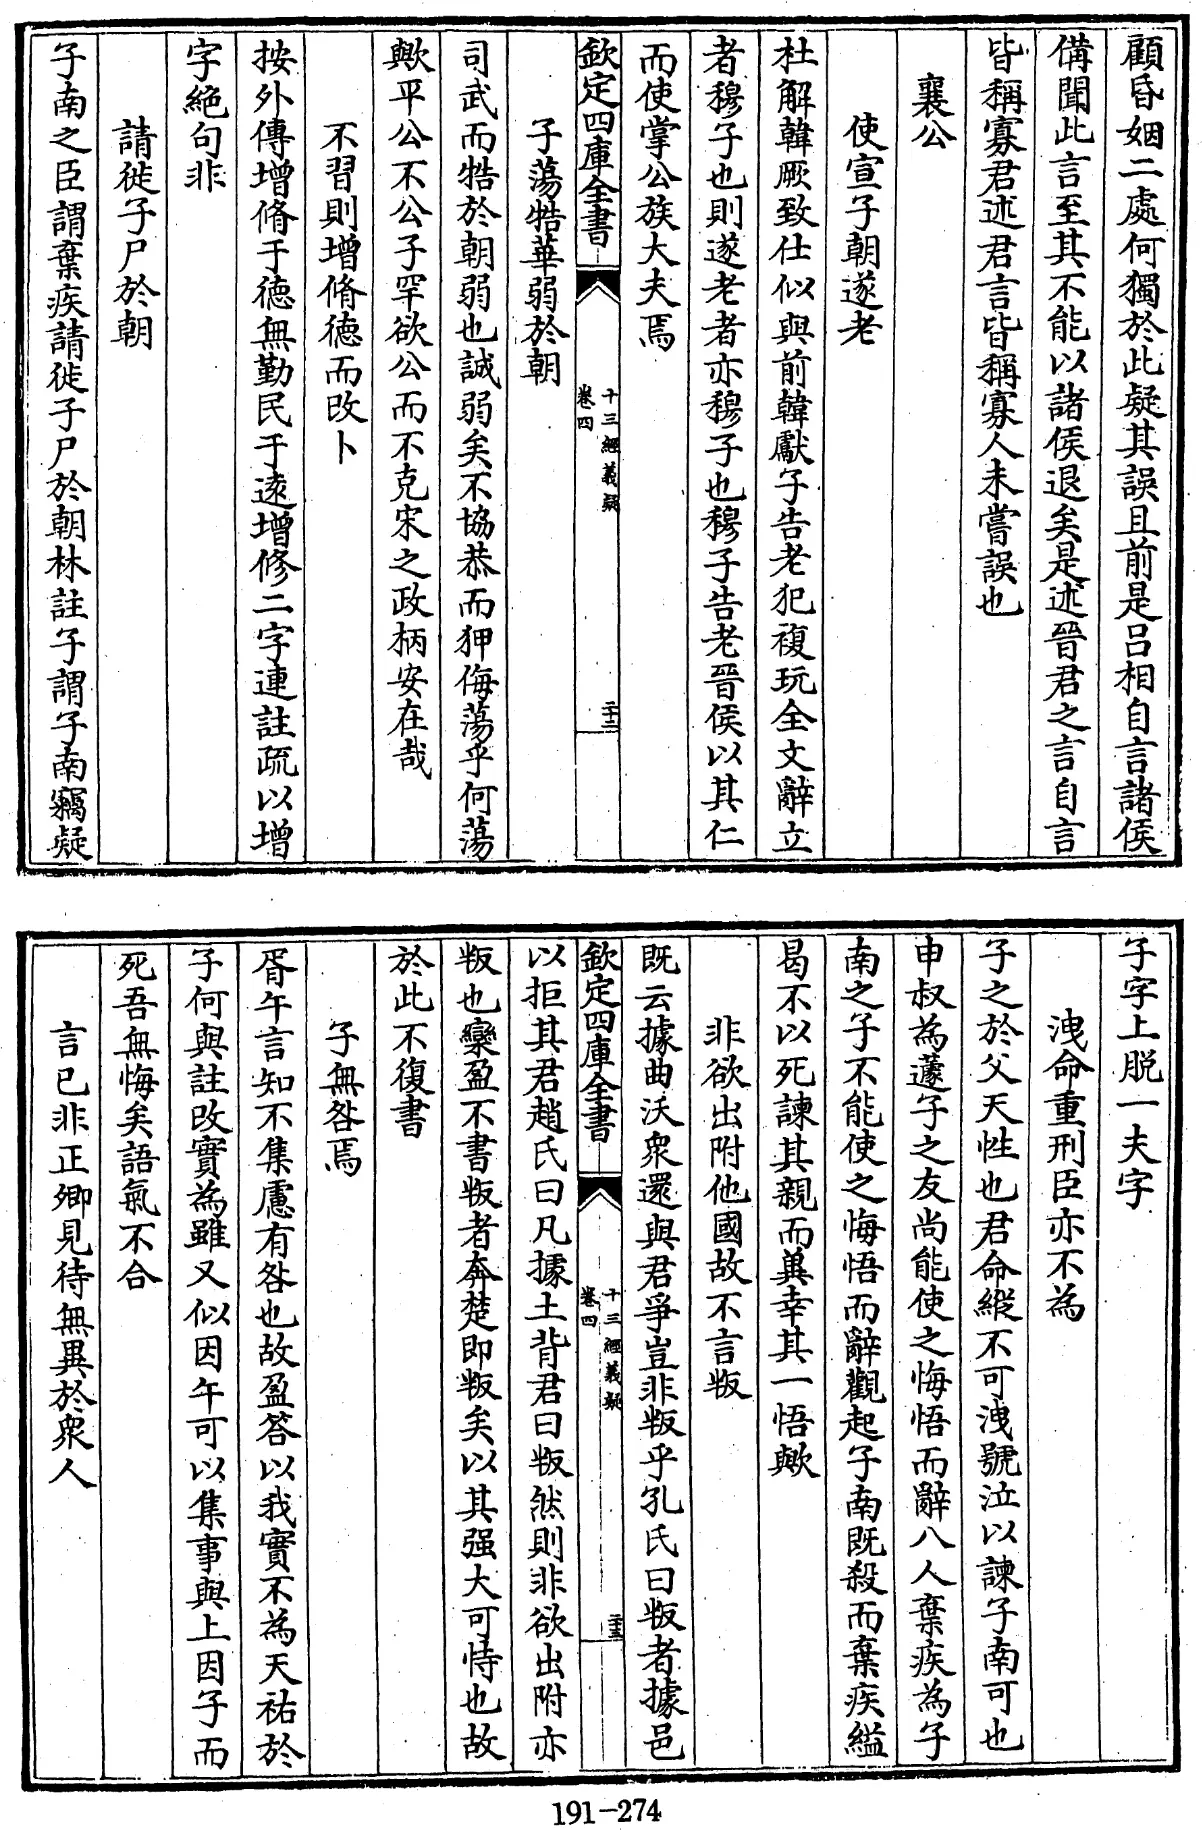 顧昏姻二處何獨於此疑其誤且前是吕相自言諸侯
備聞此言至其不能以諸侯退矣是述晉君之言自言
皆稱寡君述君言皆稱寡人未嘗誤也
襄公
使宣子朝遂老
杜解韓厥致仕似與前韓獻子告老犯複玩全文辭立
者穆子也則遂老者亦穆子也穆子告老晉侯以其仁
而使掌公族大夫焉
欽定四庫全書
十三經義疑
卷四
二十二
子蕩牿華弱於朝
司武而牿於朝弱也誠弱矣不協恭而狎侮蕩乎何蕩
歟平公不公子罕欲公而不克宋之政柄安在哉
不習則增脩德而改卜
按外傳增脩于德無勤民于逺增修二字連註疏以增
字絶句非
請徙子尸於朝
子南之臣謂棄疾請徙子尸於朝林註子謂子南竊疑
子字上脱一夫字
洩命重刑臣亦不為
子之於父天性也君命縱不可洩號泣以諫子南可也
申叔為薳子之友尚能使之悔悟而辭八人棄疾為子
南之子不能使之悔悟而辭觀起子南既殺而棄疾縊
曷不以死諫其親而冀幸其一悟歟
非欲出附他國故不言叛
既云據曲沃衆還與君爭豈非叛乎孔氏曰叛者據邑
欽定四庫全書
十三經義疑
卷四
二十三
以拒其君趙氏曰凡據土背君曰叛然則非欲出附亦
叛也欒盈不書叛者奔楚即叛矣以其强大可恃也故
於此不復書
子無咎焉
胥午言知不集慮有咎也故盈答以我實不為天祐於
子何與註改實為雖又似因午可以集事與上因子而
死吾無悔矣語氣不合
言已非正卿見待無異於衆人
191-274